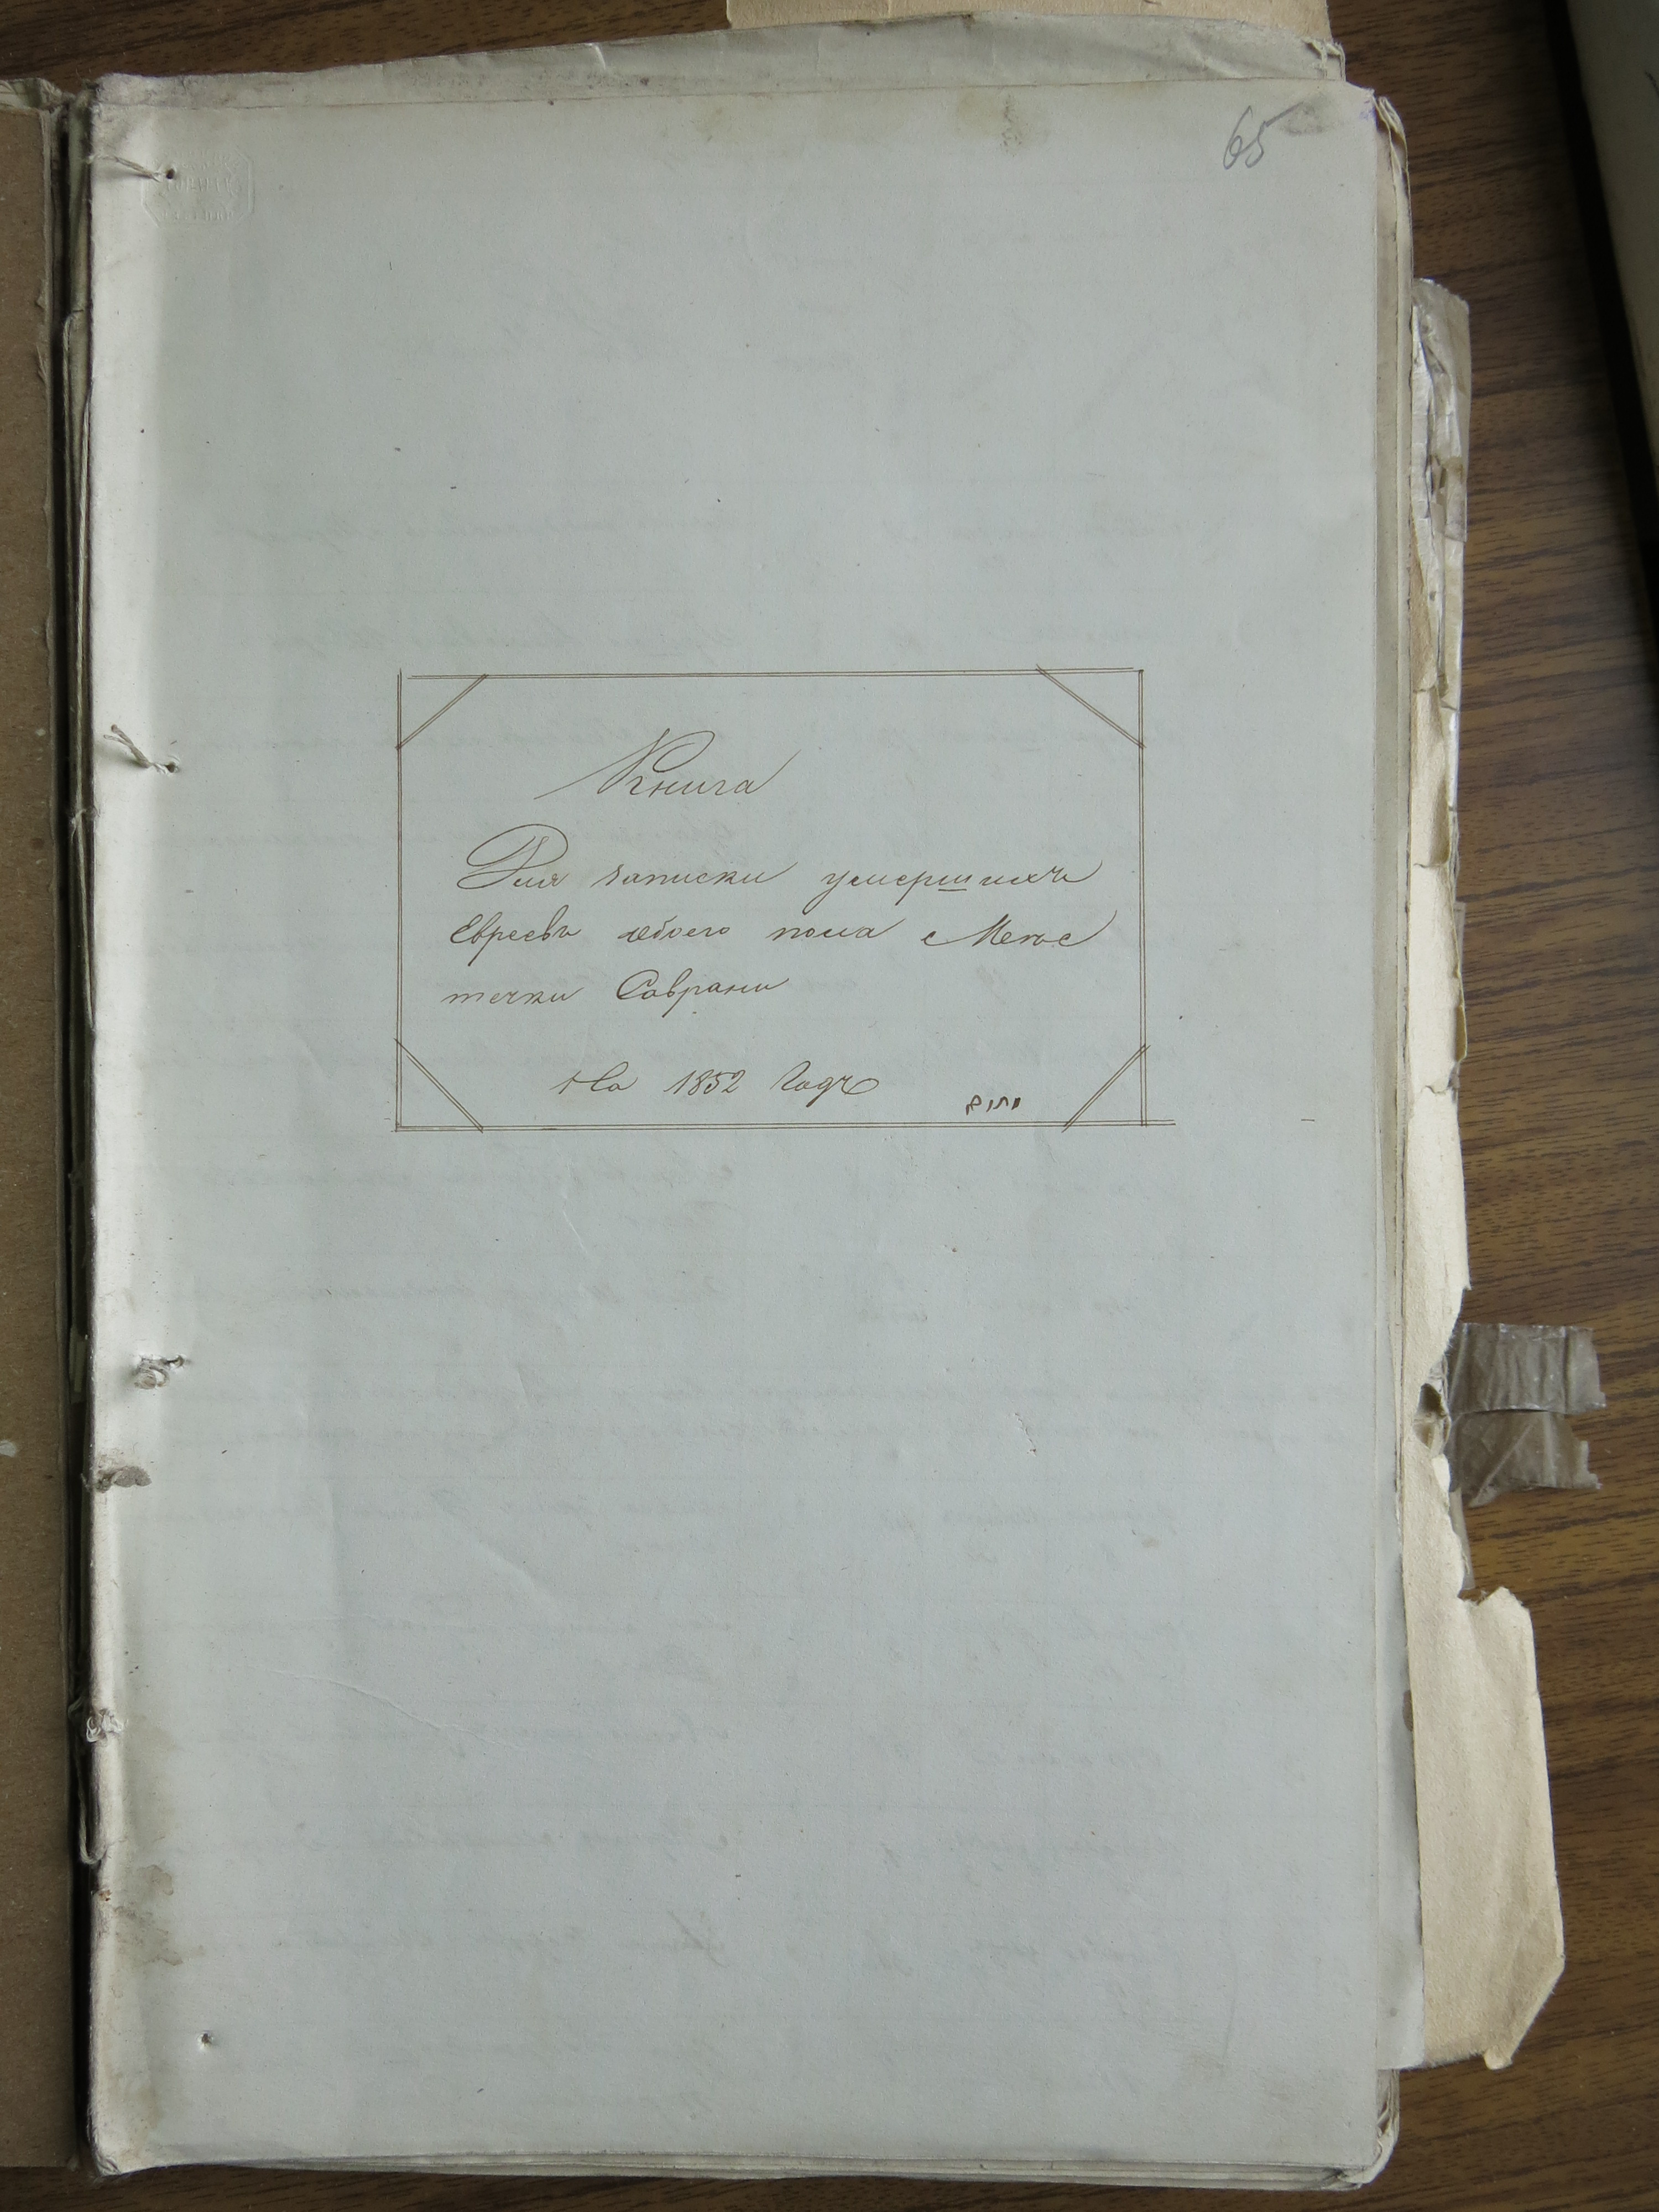 65
Книга
Для записки умершихъ
Евреевъ обоего пола Мес
течки Саврани
На 1852 Годъ